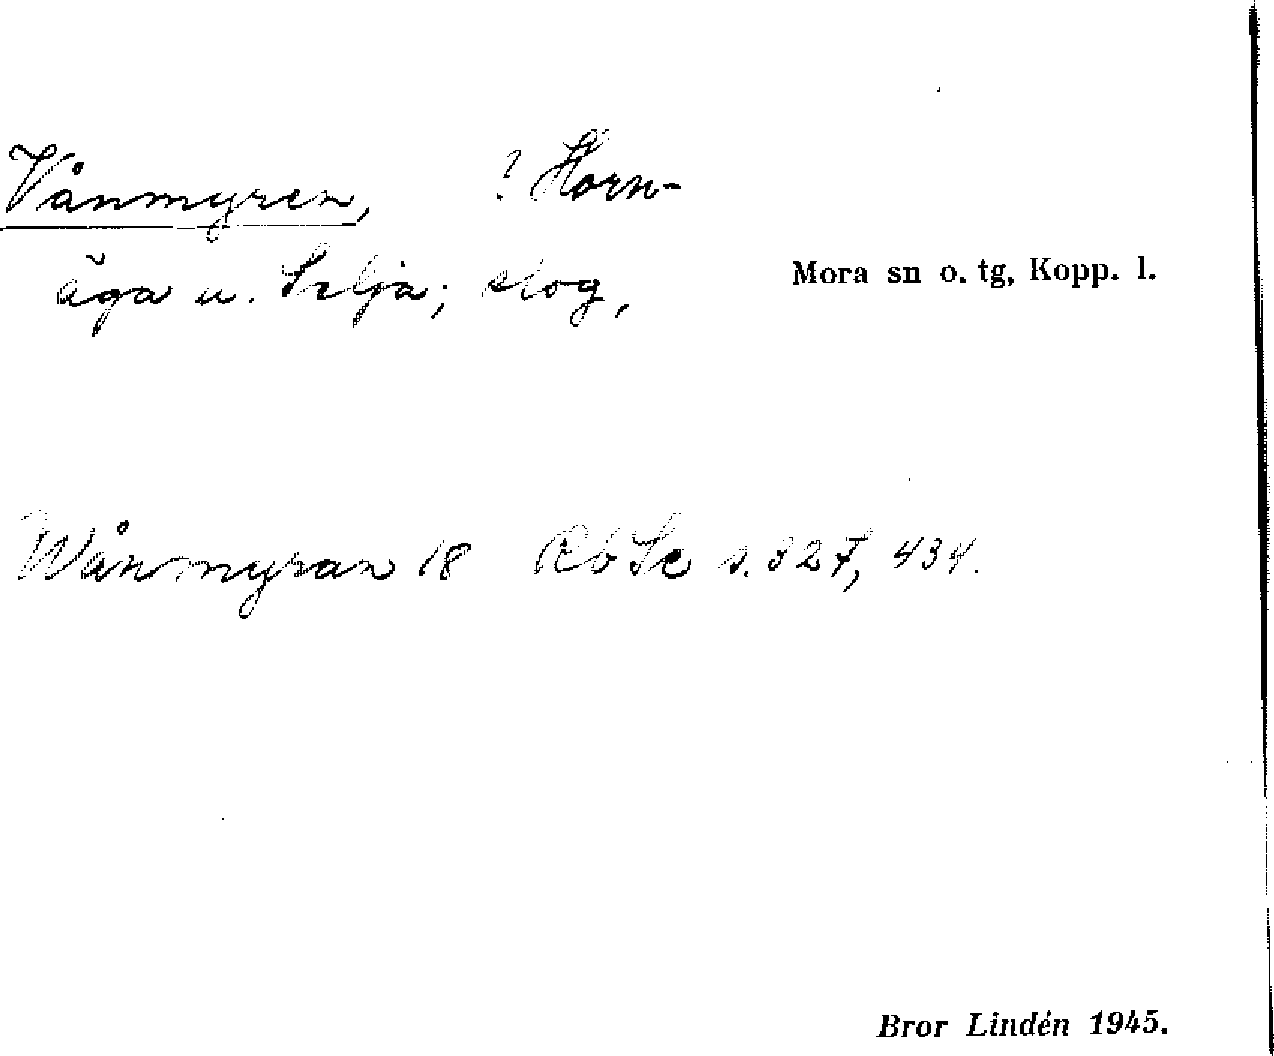 Vånmyren, ? Horn-
åga u. Selja; skog,
Mora sn o. tg, Kopp. l.
Wånmyran 18 RbSe s. 327, 434.
Bror Lindén 1945.